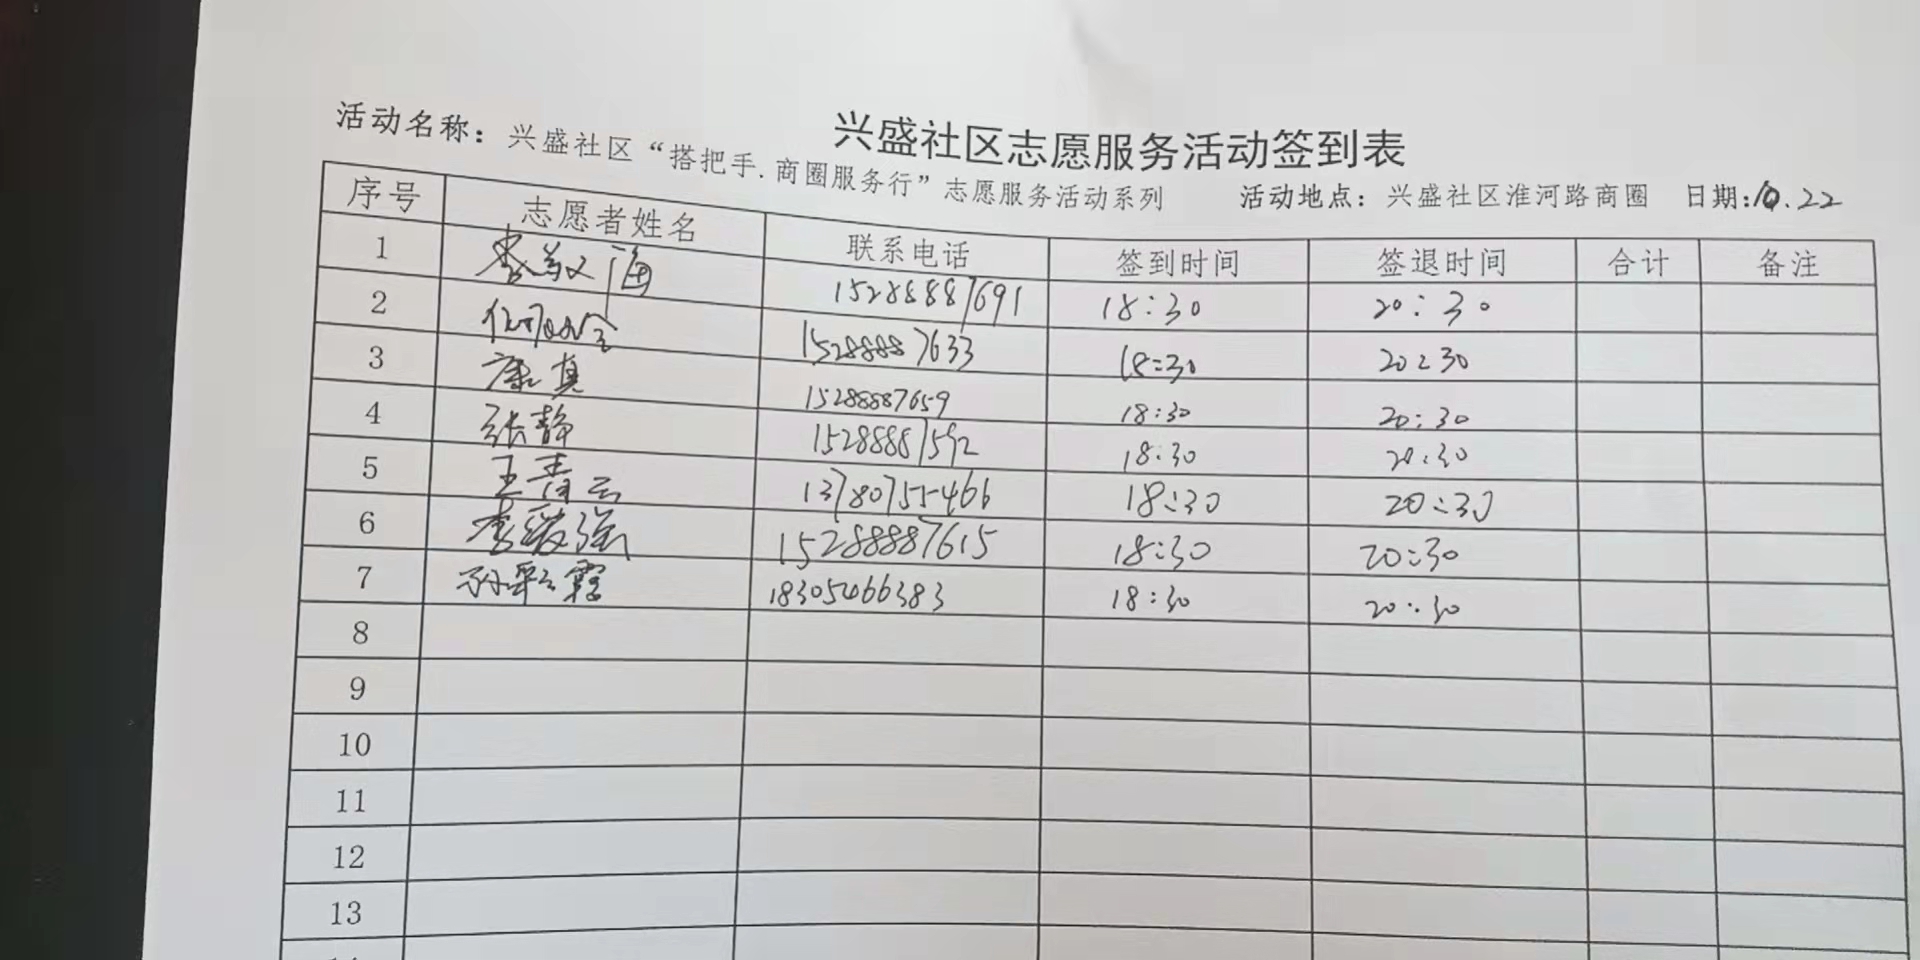 兴盛社区志愿服务活动签到表
活动名称：兴盛社区“搭把手.商圈服务行”志愿服务活动系列 活动地点：兴盛社区淮河路商圈 日期:10.22
序号 志愿者姓名 联系电话 签到时间 签退时间 合计 备注
1 15288887691 18:30 20:30
2 15288887633 18:30 20:30
3 康真 15288887659 18:30 20:30
4 张静 15288887592 18:30 20:30
5 王青云 13780755466 18:30 20:30
6 15288887615 18:30 20:30
7 孙彩霞 18305466383 18:30 20:30
8
9
10
11
12
13